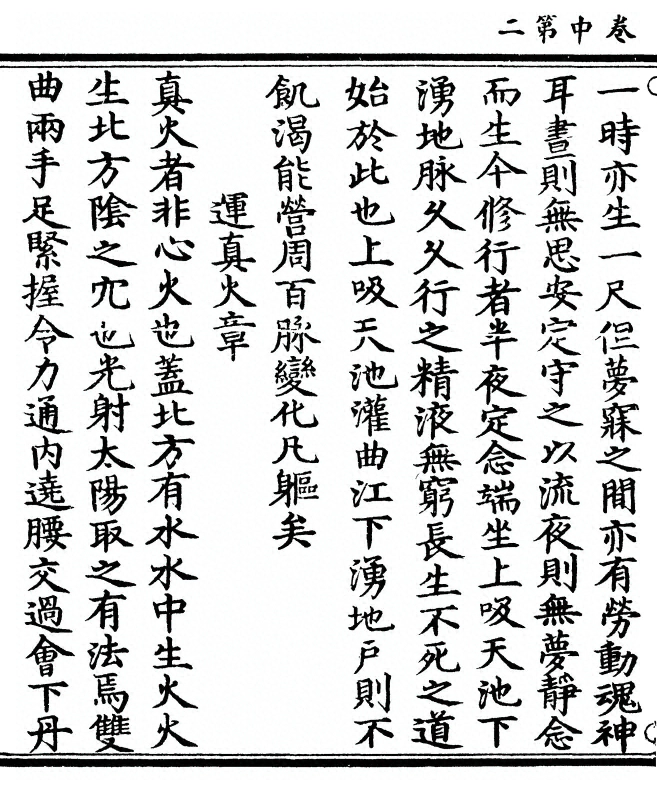 卷中第二
一時亦生一尺但夢寐之間亦有勞動魂神
耳晝則無思安定守之以流夜則無夢靜念
而生今修行者半夜定念端坐上吸天池下
湧地脉久久行之精液無窮長生不死之道
始於此也上吸天池灌曲江下湧地户則不
飢渴能營周百脉變化凡軀矣
運真火章
真火者非心火也蓋北方有水水中生火火
生北方陰之穴也光射太陽取之有法焉雙
曲兩手足緊握令力通內遶腰交過會下丹